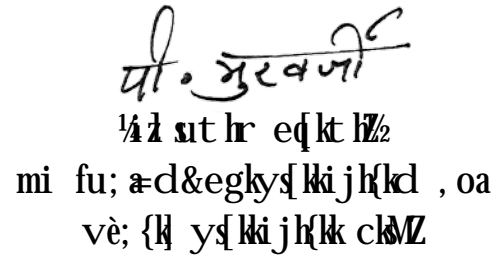 पी. मुखर्जी
¼izlsuthr eq[kthZ½
mi fu;a=d&egkys[kkijh{kd ,oa
vè;{k] ys[kkijh{kk cksMZ